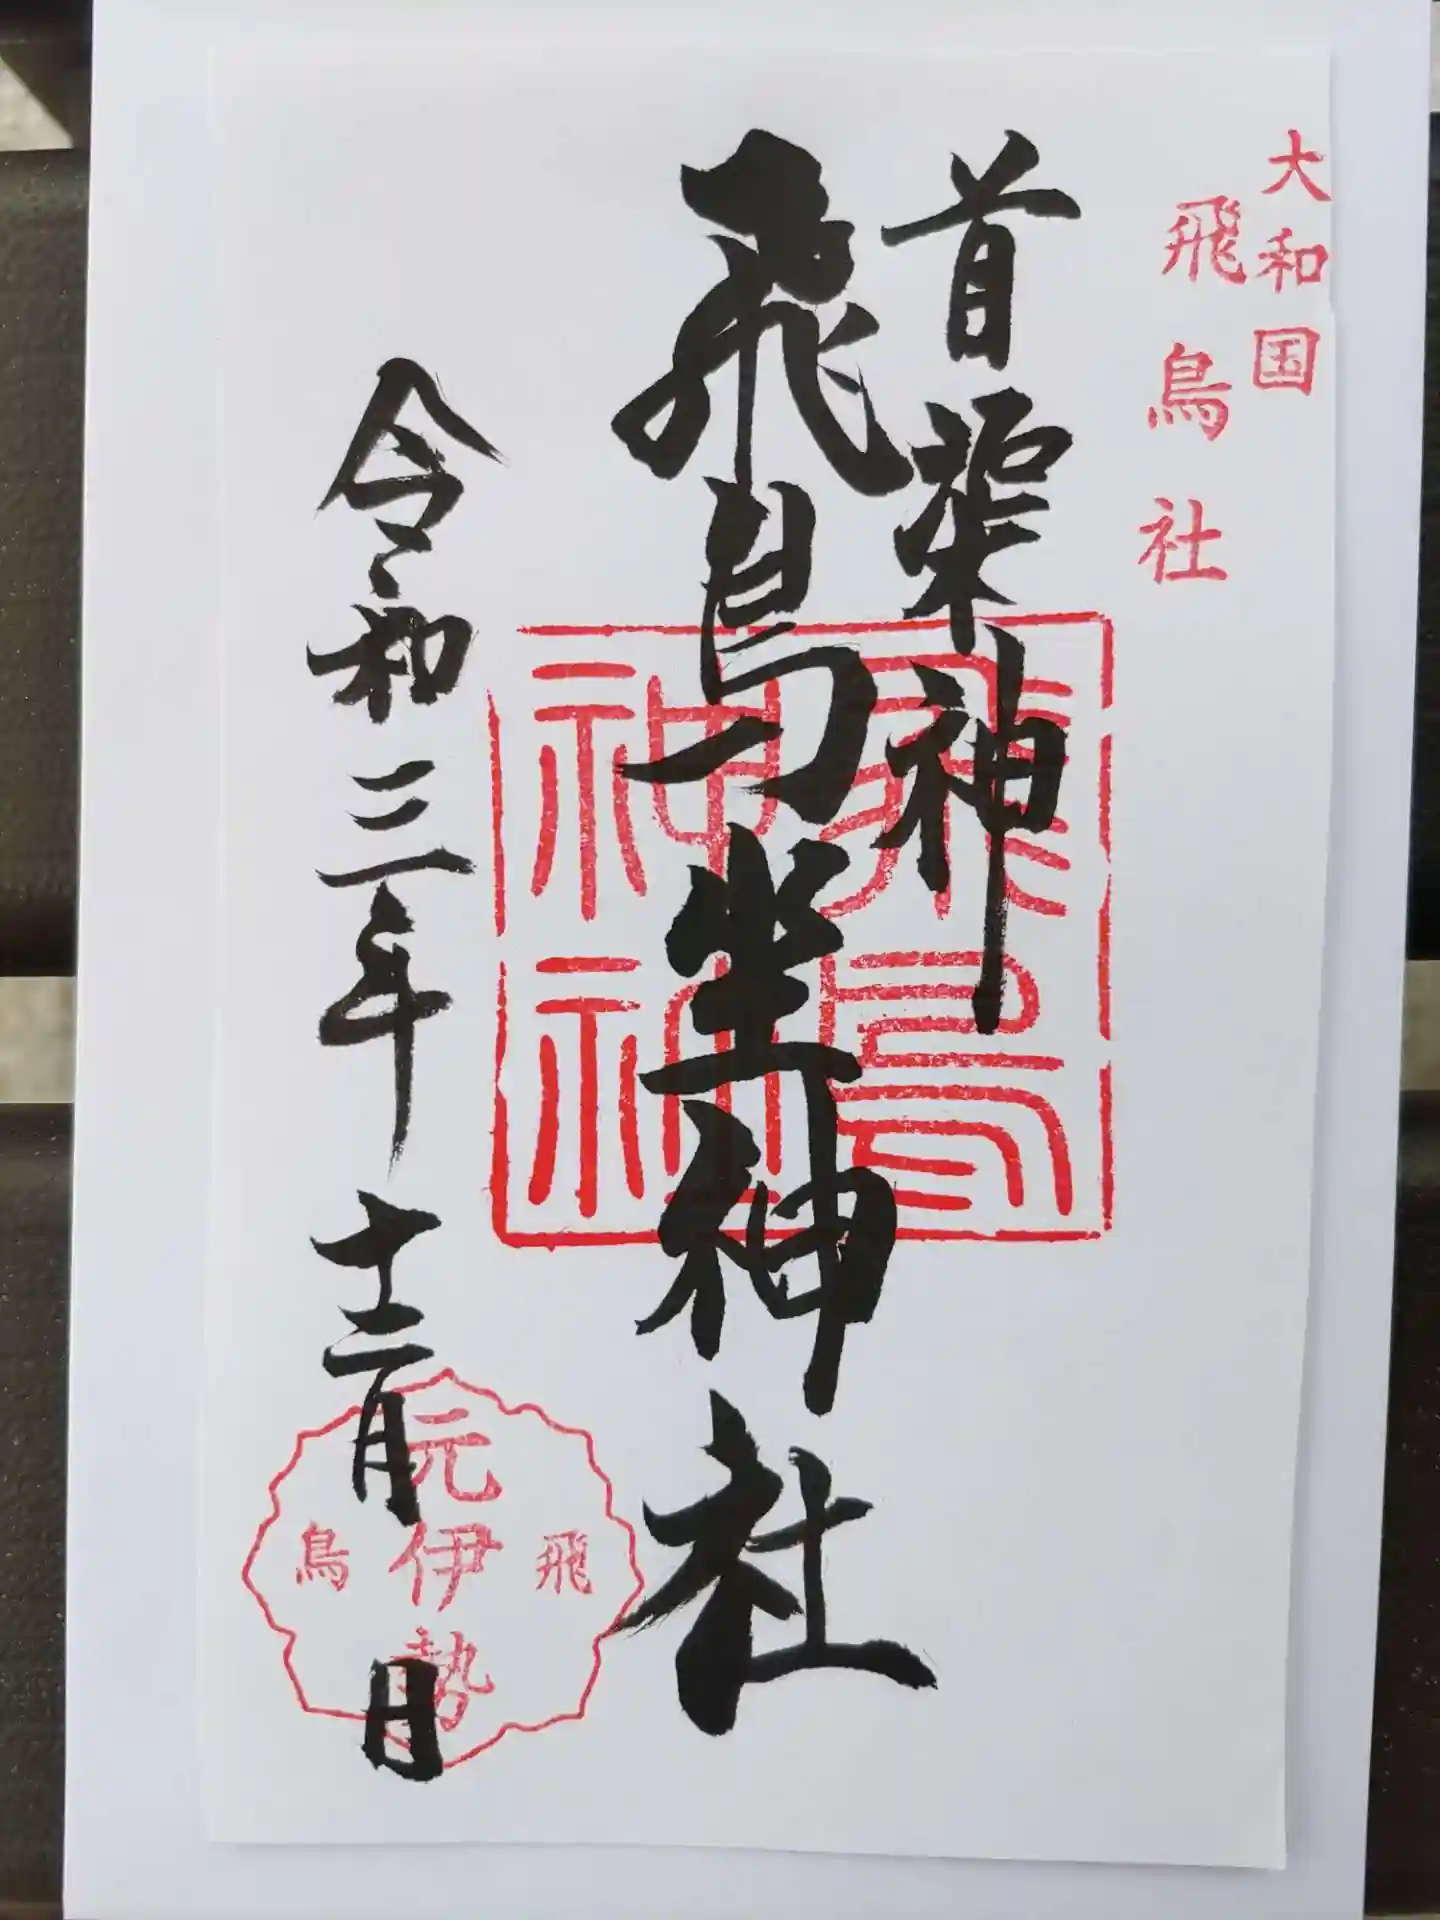 大和国
飛鳥社
首渠神
飛鳥坐神社
飛鳥
神社
令和三年十二月 日
飛
元伊勢
鳥